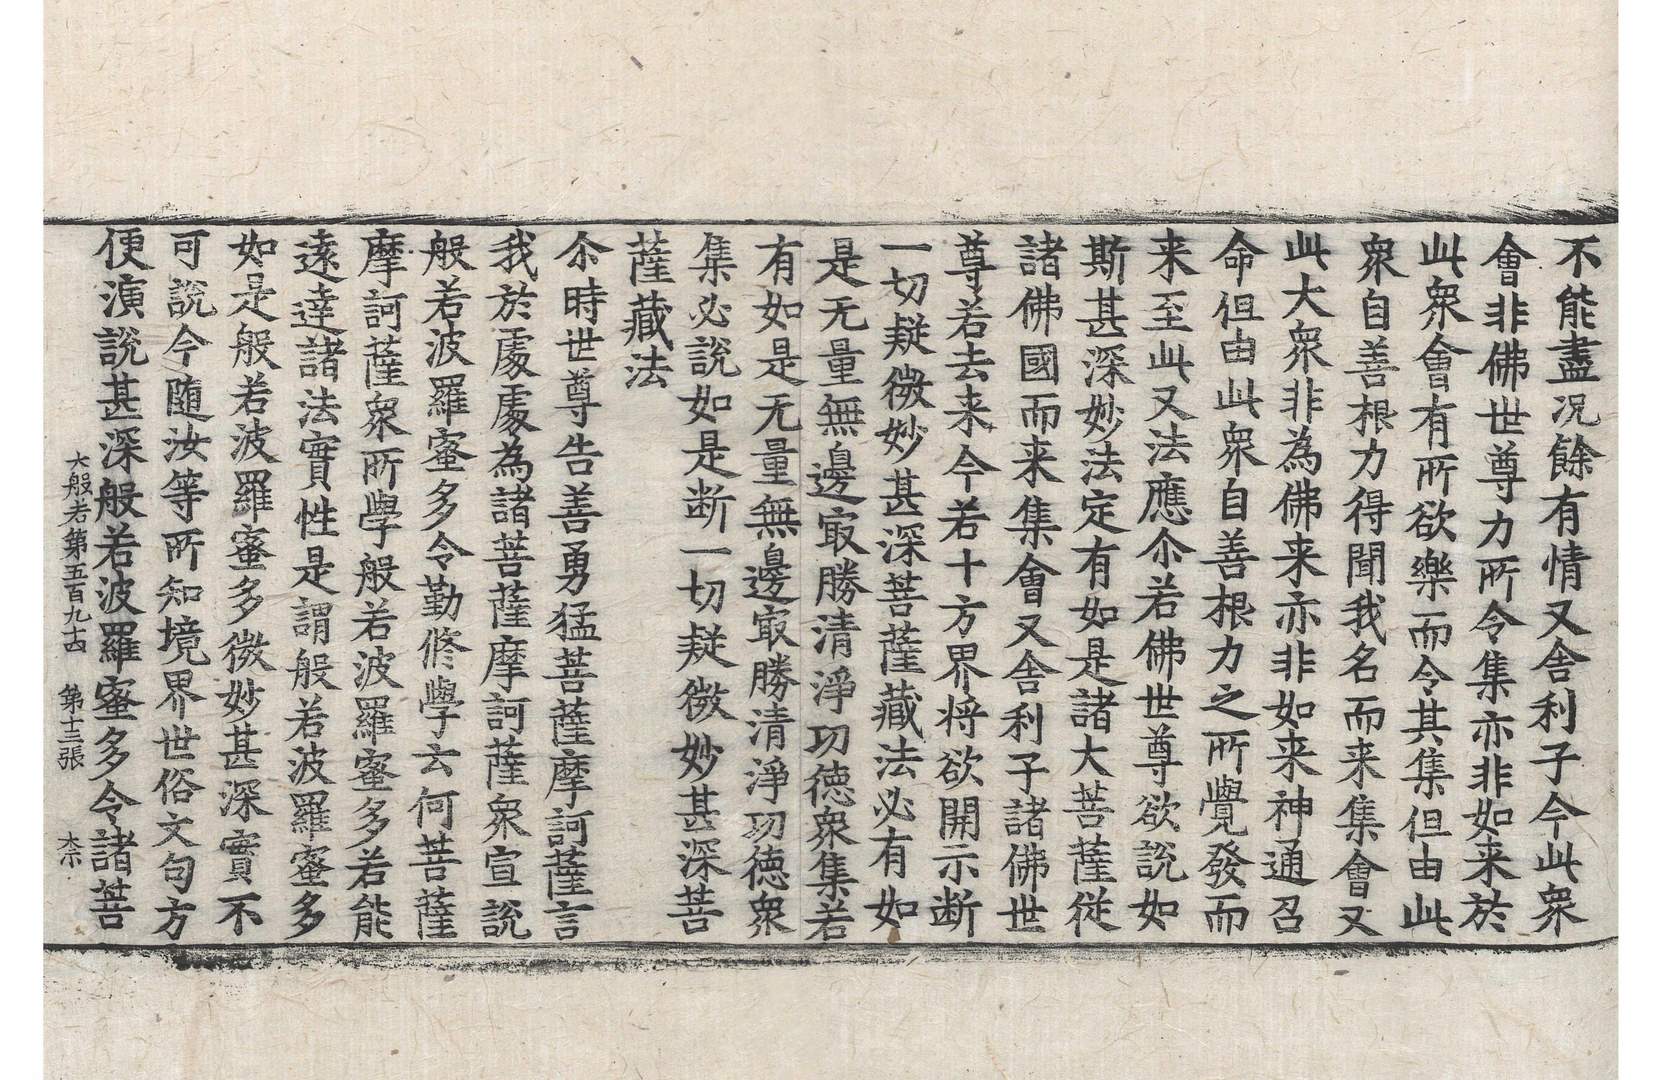 不能盡况餘有情又舍利子今此衆
會非佛世尊力所令集亦非如来於
此衆會有所欲樂而令其集但由此
衆自善根力得聞我名而来集會又
此大衆非為佛来亦非如来神通召
命但由此衆自善根力之所覺發而
来至此又法應尒若佛世尊欲說如
斯甚深妙法定有如是諸大菩薩從
諸佛國而来集會又舎利子諸佛世
尊若去来今若十方界将欲開示断
一切疑微妙甚深菩薩藏法必有如
是无量無邊冣勝清淨功德衆集若
有如是无量無邊冣勝清淨功徳衆
集必說如是断一切疑微妙甚深菩
薩藏法
尒時世尊告善勇猛菩薩摩訶薩言
我於處處為諸菩薩摩訶薩衆宣說
般若波羅蜜多令勤修學云何菩薩
摩訶薩衆所學般若波羅蜜多若能
遠達諸法實性是謂般若波羅蜜多
如是般若波羅蜜多微妙甚深實不
可說今随汝等所知境界世俗文句方
便演說甚深般若波羅蜜多令諸菩
大般若第五百九十四 第十三張